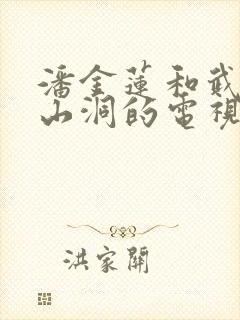 潘金蓮和武
山洞的電視
洪家開